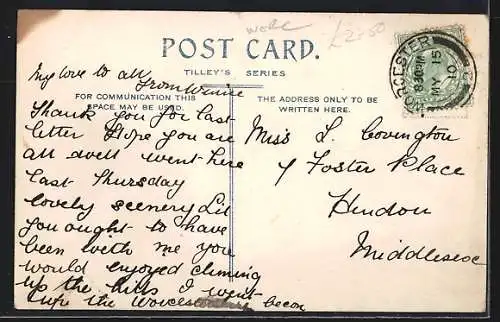 WORC
£2-50
POST CARD.
TILLEY'S SERIES
FOR COMMUNICATION THIS
SPACE MAY BE USED.
THE ADDRESS ONLY TO BE
WRITTEN HERE.
WORCESTER
8.30PM
MY 15
My love to all
From Winnie
Thank you for last
letter Hope you are
all well went here
last Thursday
lovely scenery Lil
you ought to have
been with me you
would enjoyed climing
up the hills I went
up the Worcestershire becon
Miss L. Covington
Foster Place
Hendon
Middlesex